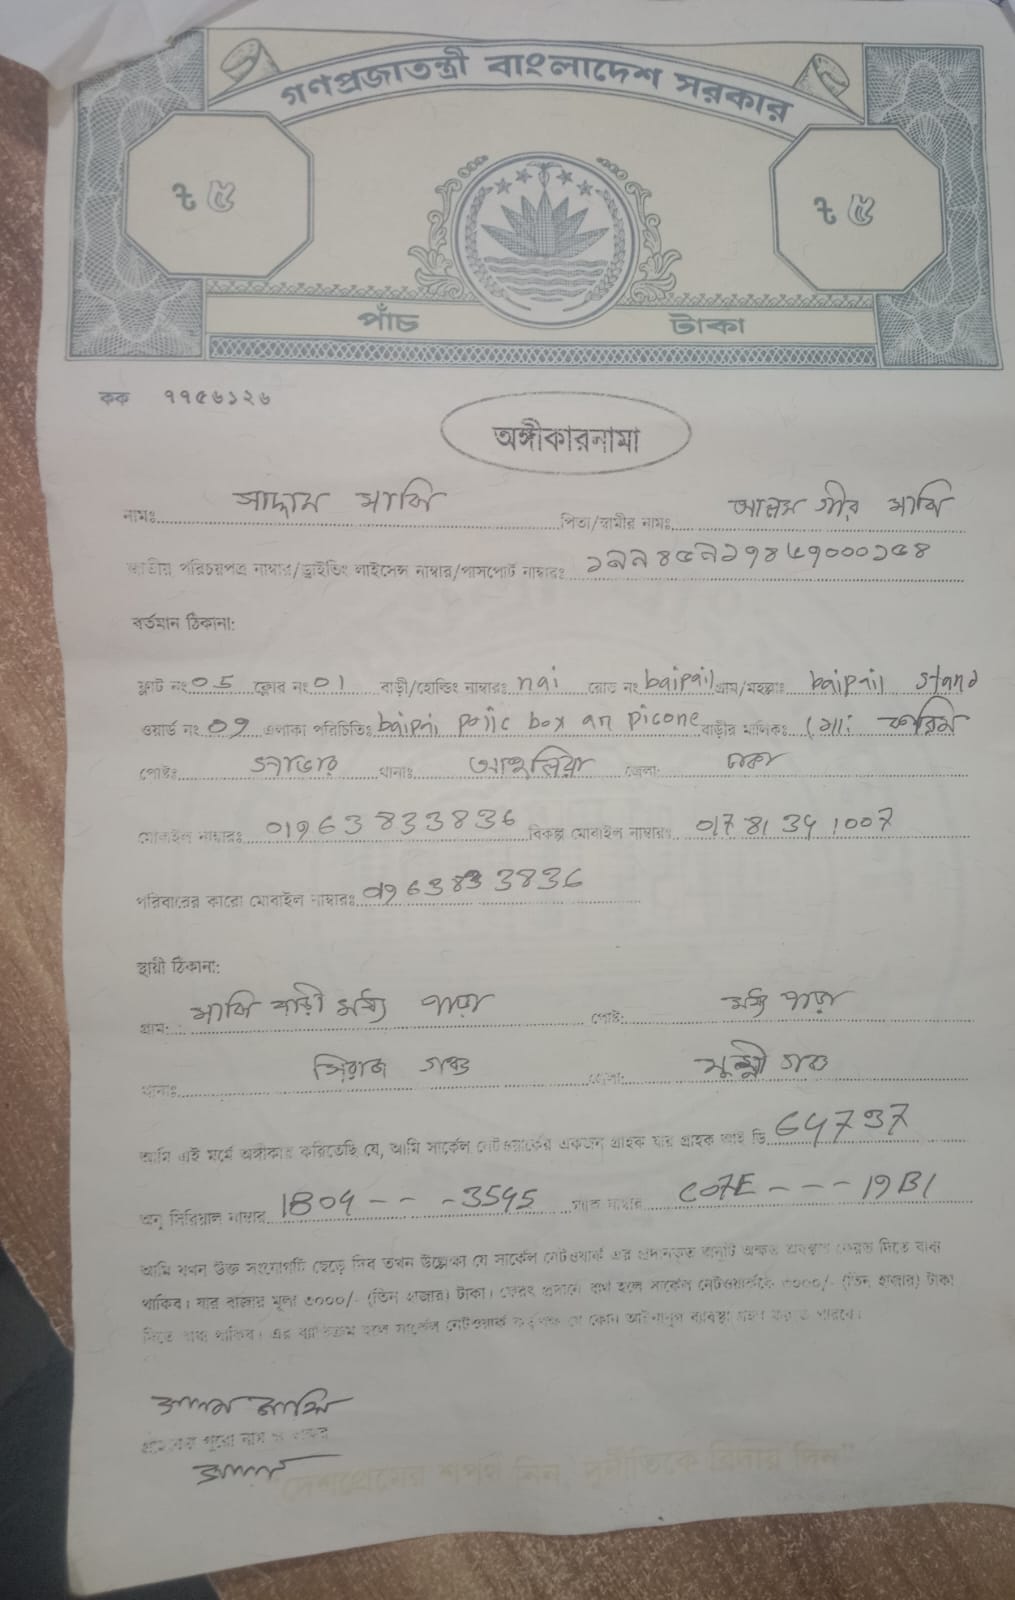 গণপ্রজাতন্ত্রী বাংলাদেশ সরকার
৳ ৫
৳ ৫
পাঁচ টাকা
কক ৭৭৫৬১২৬
অঙ্গীকারনামা
নামঃ সাদ্দাম মাঝি পিতা/স্বামীর নামঃ আলম গীর মাঝি
জাতীয় পরিচয়পত্র নাম্বার/ড্রাইভিং লাইসেন্স নাম্বার/পাসপোর্ট নাম্বারঃ
বর্তমান ঠিকানা:
ফ্লাট নং 05 ফ্লোর নং 01 বাড়ী/হোল্ডিং নাম্বারঃ nai রোড নং baipail গ্রাম/মহল্লাঃ baipail stand
ওয়ার্ড নং 09 এলাকা পরিচিতিঃ box an picone বাড়ীর মালিকঃ মোঃ করিম
পোষ্টঃ সাভার থানাঃ আশুলিয়া জেলা: ঢাকা
মোবাইল নাম্বারঃ 01963833836 বিকল্প মোবাইল নাম্বারঃ 01781341007
পরিবারের কারো মোবাইল নাম্বারঃ 01963833836
স্থায়ী ঠিকানা:
গ্রাম: মাঝি বাড়ী মধ্য পাড়া পোষ্ট: মধ্য পাড়া
থানাঃ সিরাজ গঞ্জ জেলা: মুন্সী গঞ্জ
আমি এই মর্মে অঙ্গীকার করিতেছি যে, আমি সার্কেল নেটওয়ার্কের একজন গ্রাহক যার গ্রাহক আই ডি 64797
অনু সিরিয়াল নাম্বার 1B04 - - - 3545 ম্যাক নাম্বার C07E - - - 19B1
আমি যখন উক্ত সংযোগটি ছেড়ে দিব তখন উল্লেখ্য যে সার্কেল নেটওয়ার্ক এর প্রদানকৃত অনুটি অক্ষত অবস্থায় ফেরত দিতে বাধ্য
থাকিব। যার বাজার মূল্য ৩০০০/- (তিন হাজার) টাকা। ফেরৎ প্রদানে ব্যর্থ হলে সার্কেল নেটওয়ার্ককে ৩০০০/- (তিন হাজার) টাকা
দিতে বাধ্য থাকিব। এর ব্যতিক্রম হলে সার্কেল নেটওয়ার্ক কর্তৃপক্ষ যে কোন আইনানুগ ব্যবস্থা গ্রহণ করতে পারবে।
গ্রাহকের পুরো নাম ও স্বাক্ষর
"দেশপ্রেমের শপথ নিন, দুর্নীতিকে বিদায় দিন"